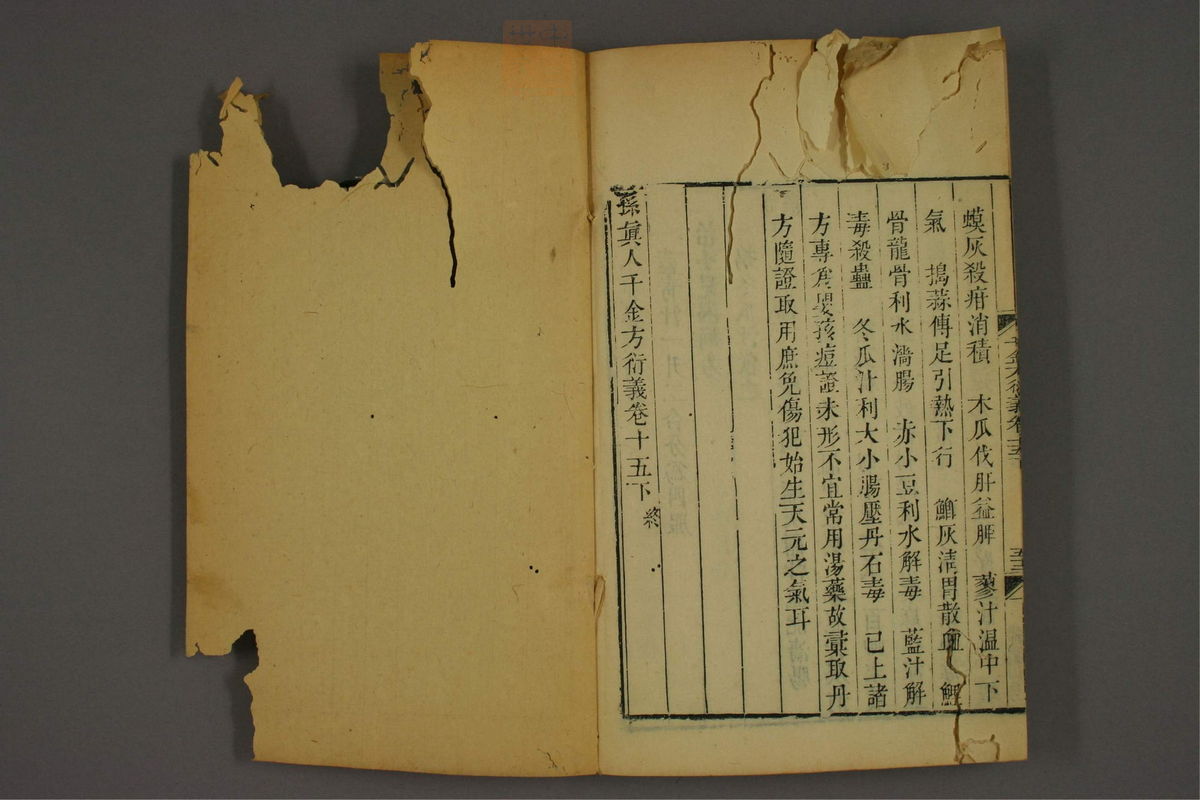 蟆灰殺疳消積　木瓜伐肝益脾　蓼汁温中下
氣　搗蒜傅足引熱下行　鯽灰淸胃散血　鯉
骨龍骨利水濇腸　赤小豆利水解毒　藍汁解
毒殺蠱　冬瓜汁利大小腸壓丹石毒　已上諸
方專爲嬰孩痘證未形不宜常用湯藥故彚取丹
方隨證取用庶免傷犯始生天元之氣耳
孫眞人千金方衍義卷十五下 終